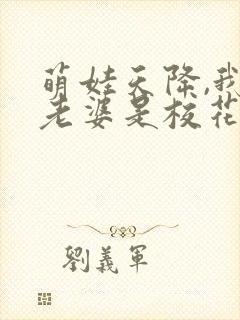 萌娃天降,我
老婆是校花
劉義軍